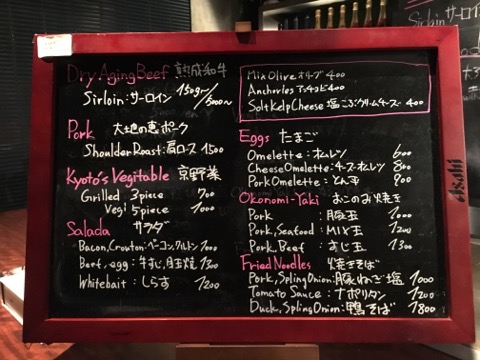 Dry Aging Beef 熟成和牛
Sirloin:サーロイン 150gr/5000~
Pork 大地の恵ポーク
Shoulder Roast:肩ロース 1500
Kyoto's Vegitable 京野菜
Grilled 3piece 700
Vegi 5piece 1000
Salada サラダ
Bacon,Crouton:ベーコン,クルトン 1000
Beef,egg:牛すじ,目玉焼 1300
Whitebait:しらす 1200
Mix Olive オリーブ 400
Anchovies アンチョビ 400
Solt Kelp Cheese 塩こぶクリームチーズ 400
Eggs たまご
Omelette:オムレツ 600
Cheese Omelette:チーズオムレツ 800
Pork Omelette:とん平 900
Okonomi-Yaki おこのみ焼き
Pork :豚玉 1000
Pork,Seafood:MIX玉 1200
Pork,Beef :すじ玉 1300
Fried Noodles 焼きそば
Pork,Spling Onion:豚ねぎ塩 1000
Tomato Sauce:ナポリタン 1200
Duck,Spling Onion:鴨そば 1800
Asahi
Sirloin サーロイン